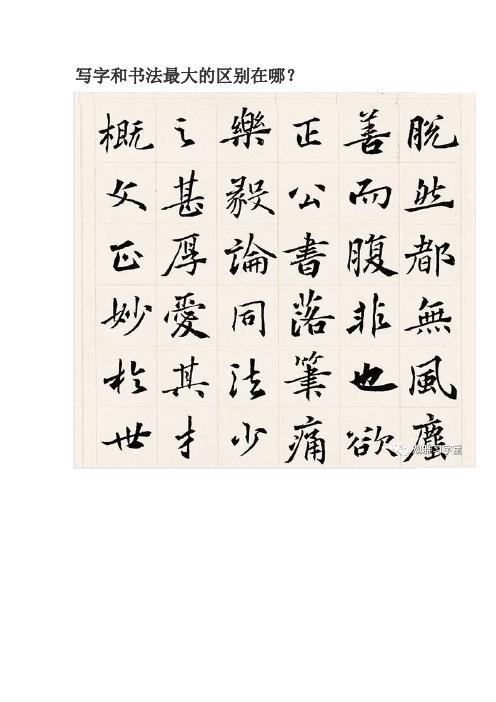 写字和书法最大的区别在哪？
脱然都無風塵
善而腹非也欲
正公書落筆痛
樂毅論同法少
之甚厚愛其才
概文正妙於世
习字堂